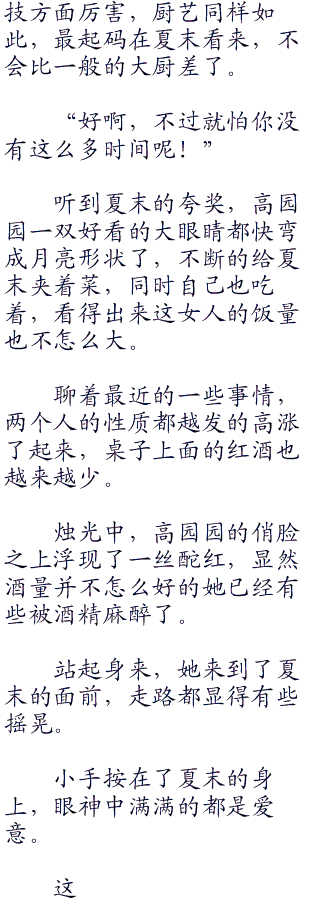 技方面厉害，厨艺同样如
此，最起码在夏末看来，不
会比一般的大厨差了。
“好啊，不过就怕你没
有这么多时间呢！”
听到夏末的夸奖，高园
园一双好看的大眼睛都快弯
成月亮形状了，不断的给夏
末夹着菜，同时自己也吃
着，看得出来这女人的饭量
也不怎么大。
聊着最近的一些事情，
两个人的性质都越发的高涨
了起来，桌子上面的红酒也
越来越少。
烛光中，高园园的俏脸
之上浮现了一丝酡红，显然
酒量并不怎么好的她已经有
些被酒精麻醉了。
站起身来，她来到了夏
末的面前，走路都显得有些
摇晃。
小手按在了夏末的身
上，眼神中满满的都是爱
意。
这